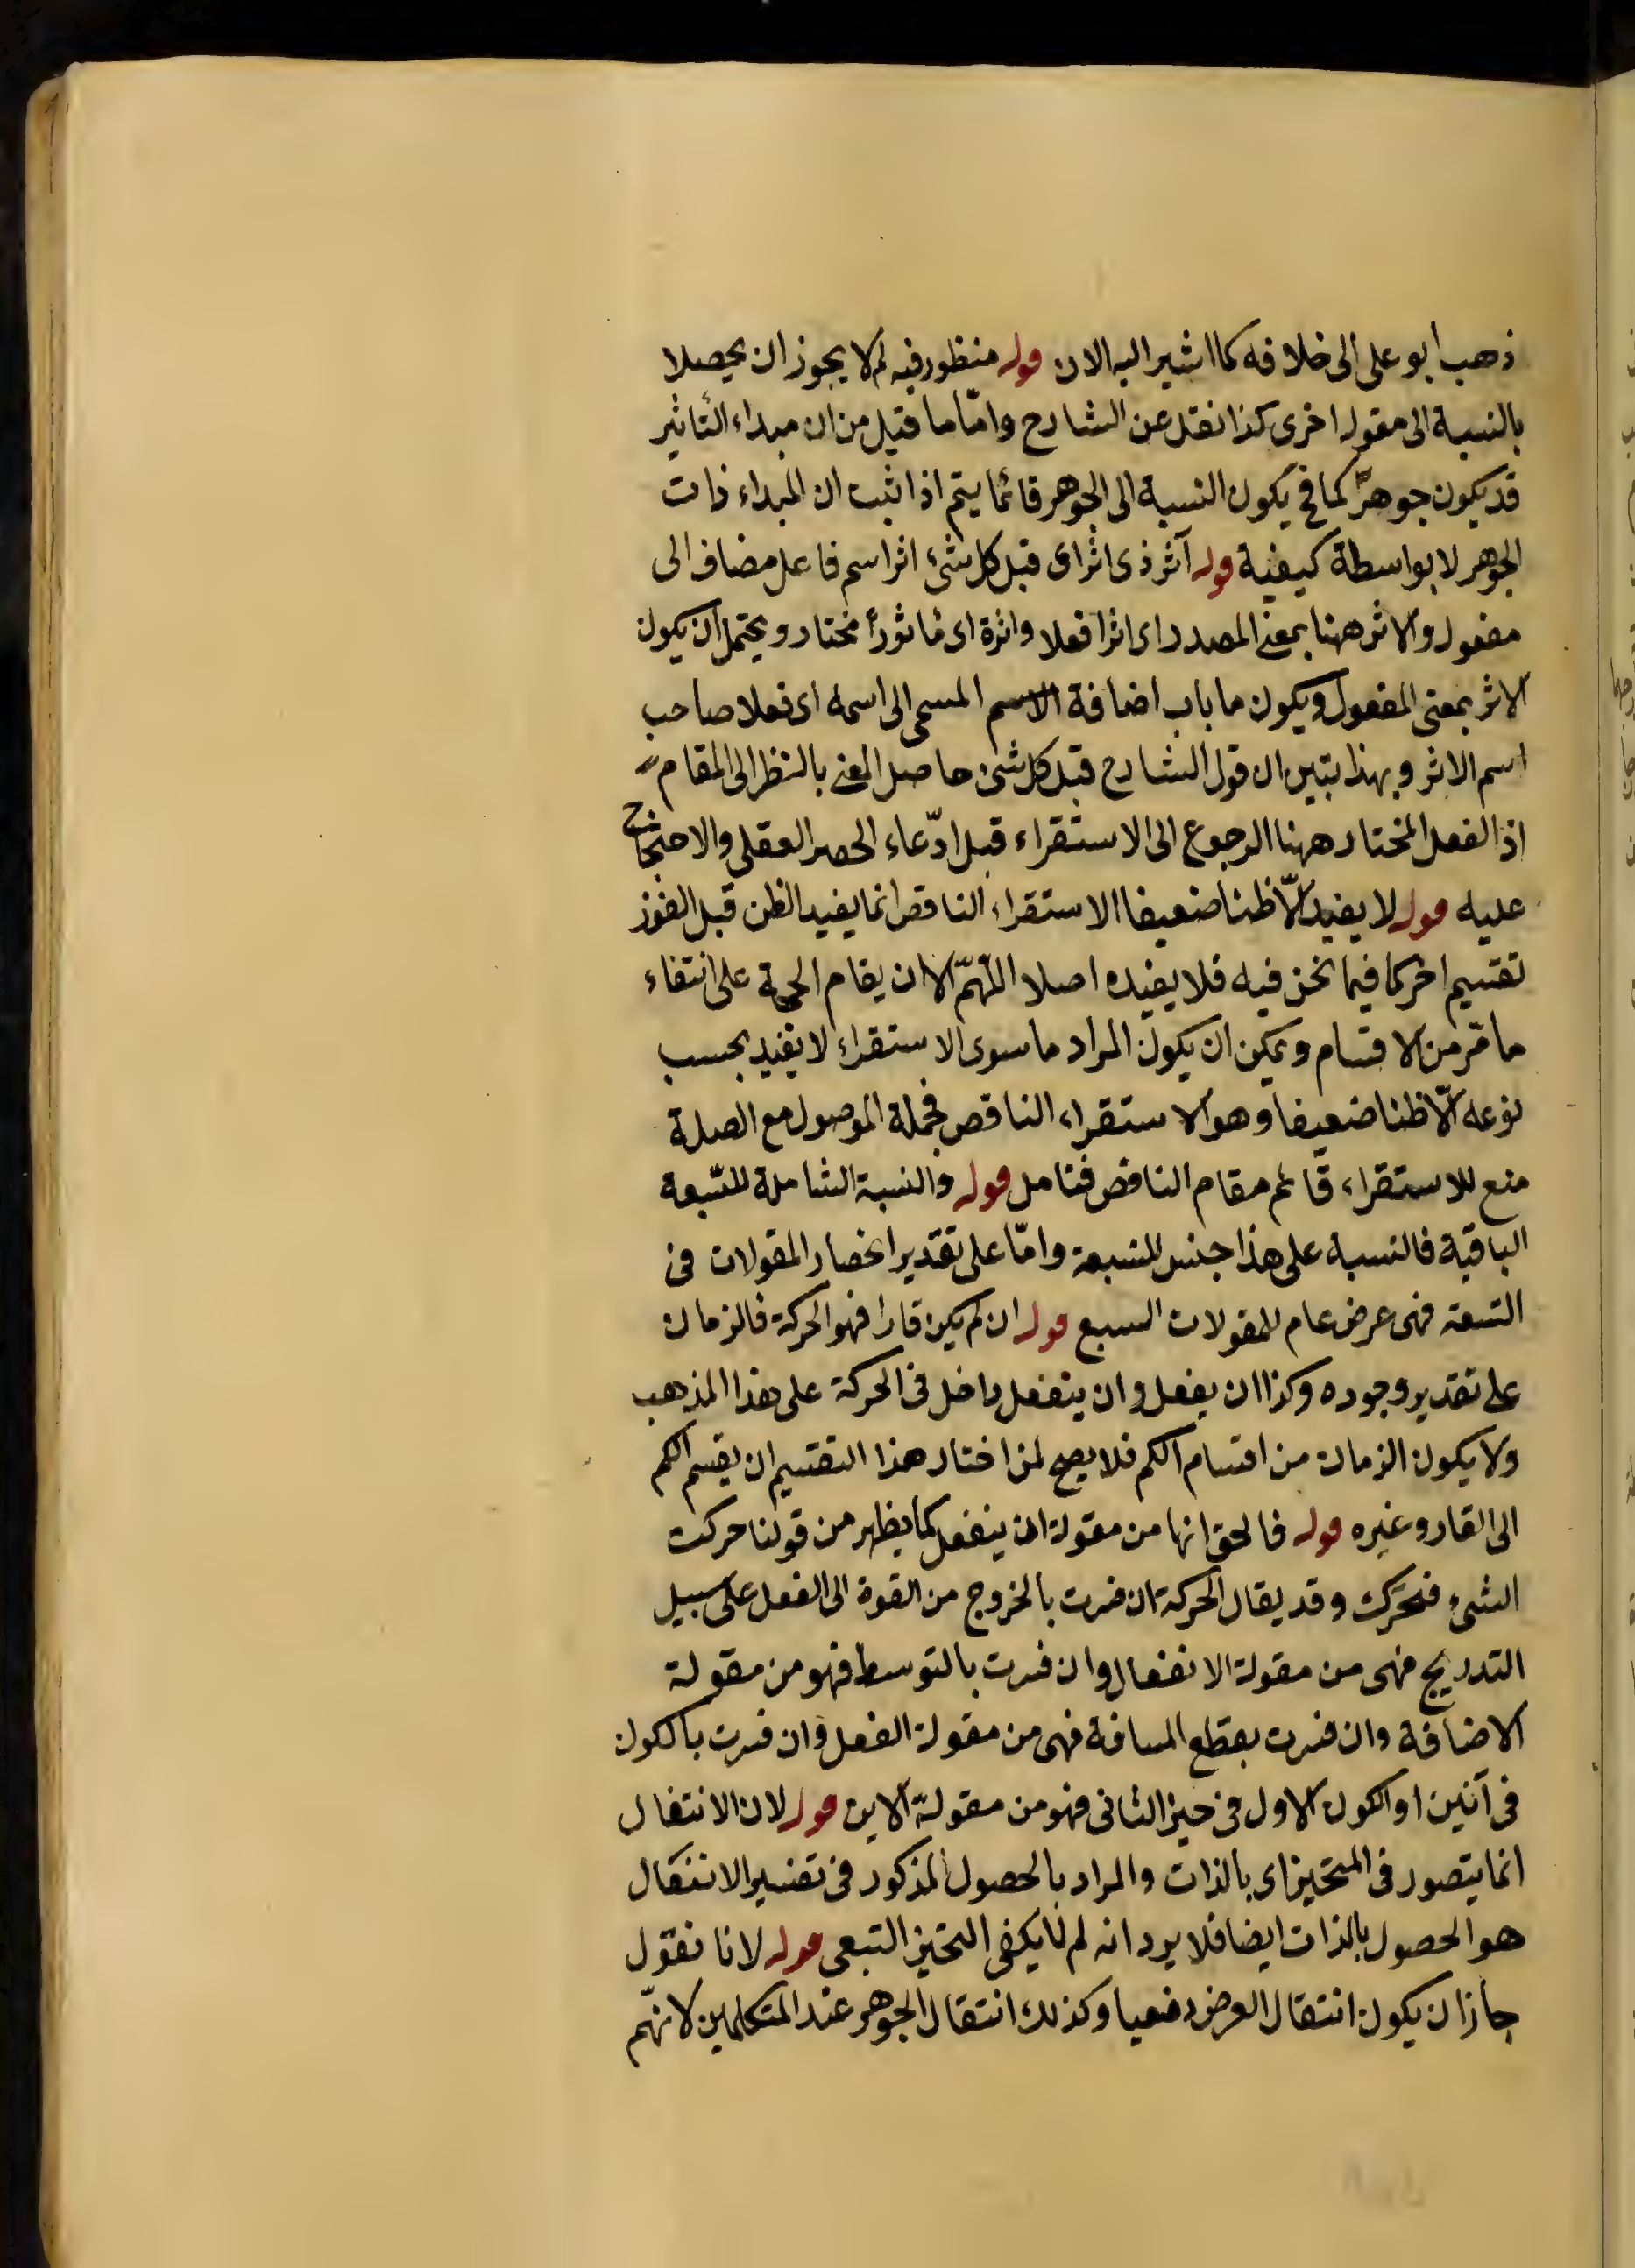 ذهب ابو على الى خلافه كما اشير اليه الان قوله منظور فيه لم لا يجوز ان يحصلا
بالنسبة الى مقولة اخرى كذا نقل عن الشارح وامّا ما قيل من ان مبداء التاثير
قد يكون جوهرًا كما فى يكون النسبة الى الجوهر فانما يتم اذا ثبت ان المبداء ذات
الجوهر لا بواسطة كيفية قوله آثر ذى اثر اى قبل كل شئ اثر اسم فاعل مضاف الى
مفعول والاثر ههنا بمعنى المصدر اى اثرا فعلا واثرة اى ماثورًا مختار ويحتمل ان يكون
الاثر بمعنى المفعول ويكون ما باب اضافة الاسم المسمى الى اسمه اى فعلا صاحب
اسم الاثر وبهذا يتبين ان قول الشارح قبل كل شئ حاصل المعنى بالنظر الى المقام
اذ الفعل المختار ههنا الرجوع الى الاستقراء قبل ادّعاء الحصر العقلى والاحتجاج
عليه قوله لا يفيد الّا ظنا ضعيفا الاستقراء الناقص انما يفيد الظن قبل الفوز
تقسيم اخر كما فيما نحن فيه فلا يفيده اصلا اللّهمّ الا ان يقام الحجة على انتفاء
ما مرّ من الاقسام ويمكن ان يكون المراد ما سوى الاستقراء لا يفيد بحسب
نوعه الّا ظنا ضعيفا وهو الاستقراء الناقص فجملة الموصول مع الصلة
منع للاستقراء قائم مقام الناقص فتامل قوله والنسبة الشاملة للسّبعة
الباقية فالنسبة على هذا جنس للسبعة وامّا على تقدير انحصار المقولات فى
التسعة فهى عرض عام للمقولات السبع قوله ان لم يكن قارا فهو الحركة فالزمان
على تقدير وجوده وكذا ان يفعل وان ينفعل داخل فى الحركة على هذا المذهب
ولا يكون الزمان من اقسام الكم فلا يصح لمن اختار هذا التقسيم ان يقسم الكم
الى القار وغيره قوله فالحق انها من مقولة ان ينفعل كما يظهر من قولنا حركت
الشئ فتحرّك وقد يقال الحركة ان فسرت بالخروج من القوة الى الفعل على سبيل
التدريج فهى من مقولة الانفعال وان فسرت بالتوسط فهو من مقولة
الاضافة وان فسرت بقطع المسافة فهى من مقولة الفعل وان فسرت بالكون
فى آنين او الكون الاول فى حيز الثانى فهو من مقولة الاين قوله لان الانتقال
انما يتصور فى المتحيز اى بالذات والمراد بالحصول المذكور فى تفسير الانتقال
هو الحصول بالذات ايضا فلا يرد انه لم لا يكفى التحيز التبعى قوله لانا نقول
جاز ان يكون انتقال العرض دفعيا وكذلك انتقال الجوهر عند المتكلمين لانّهم